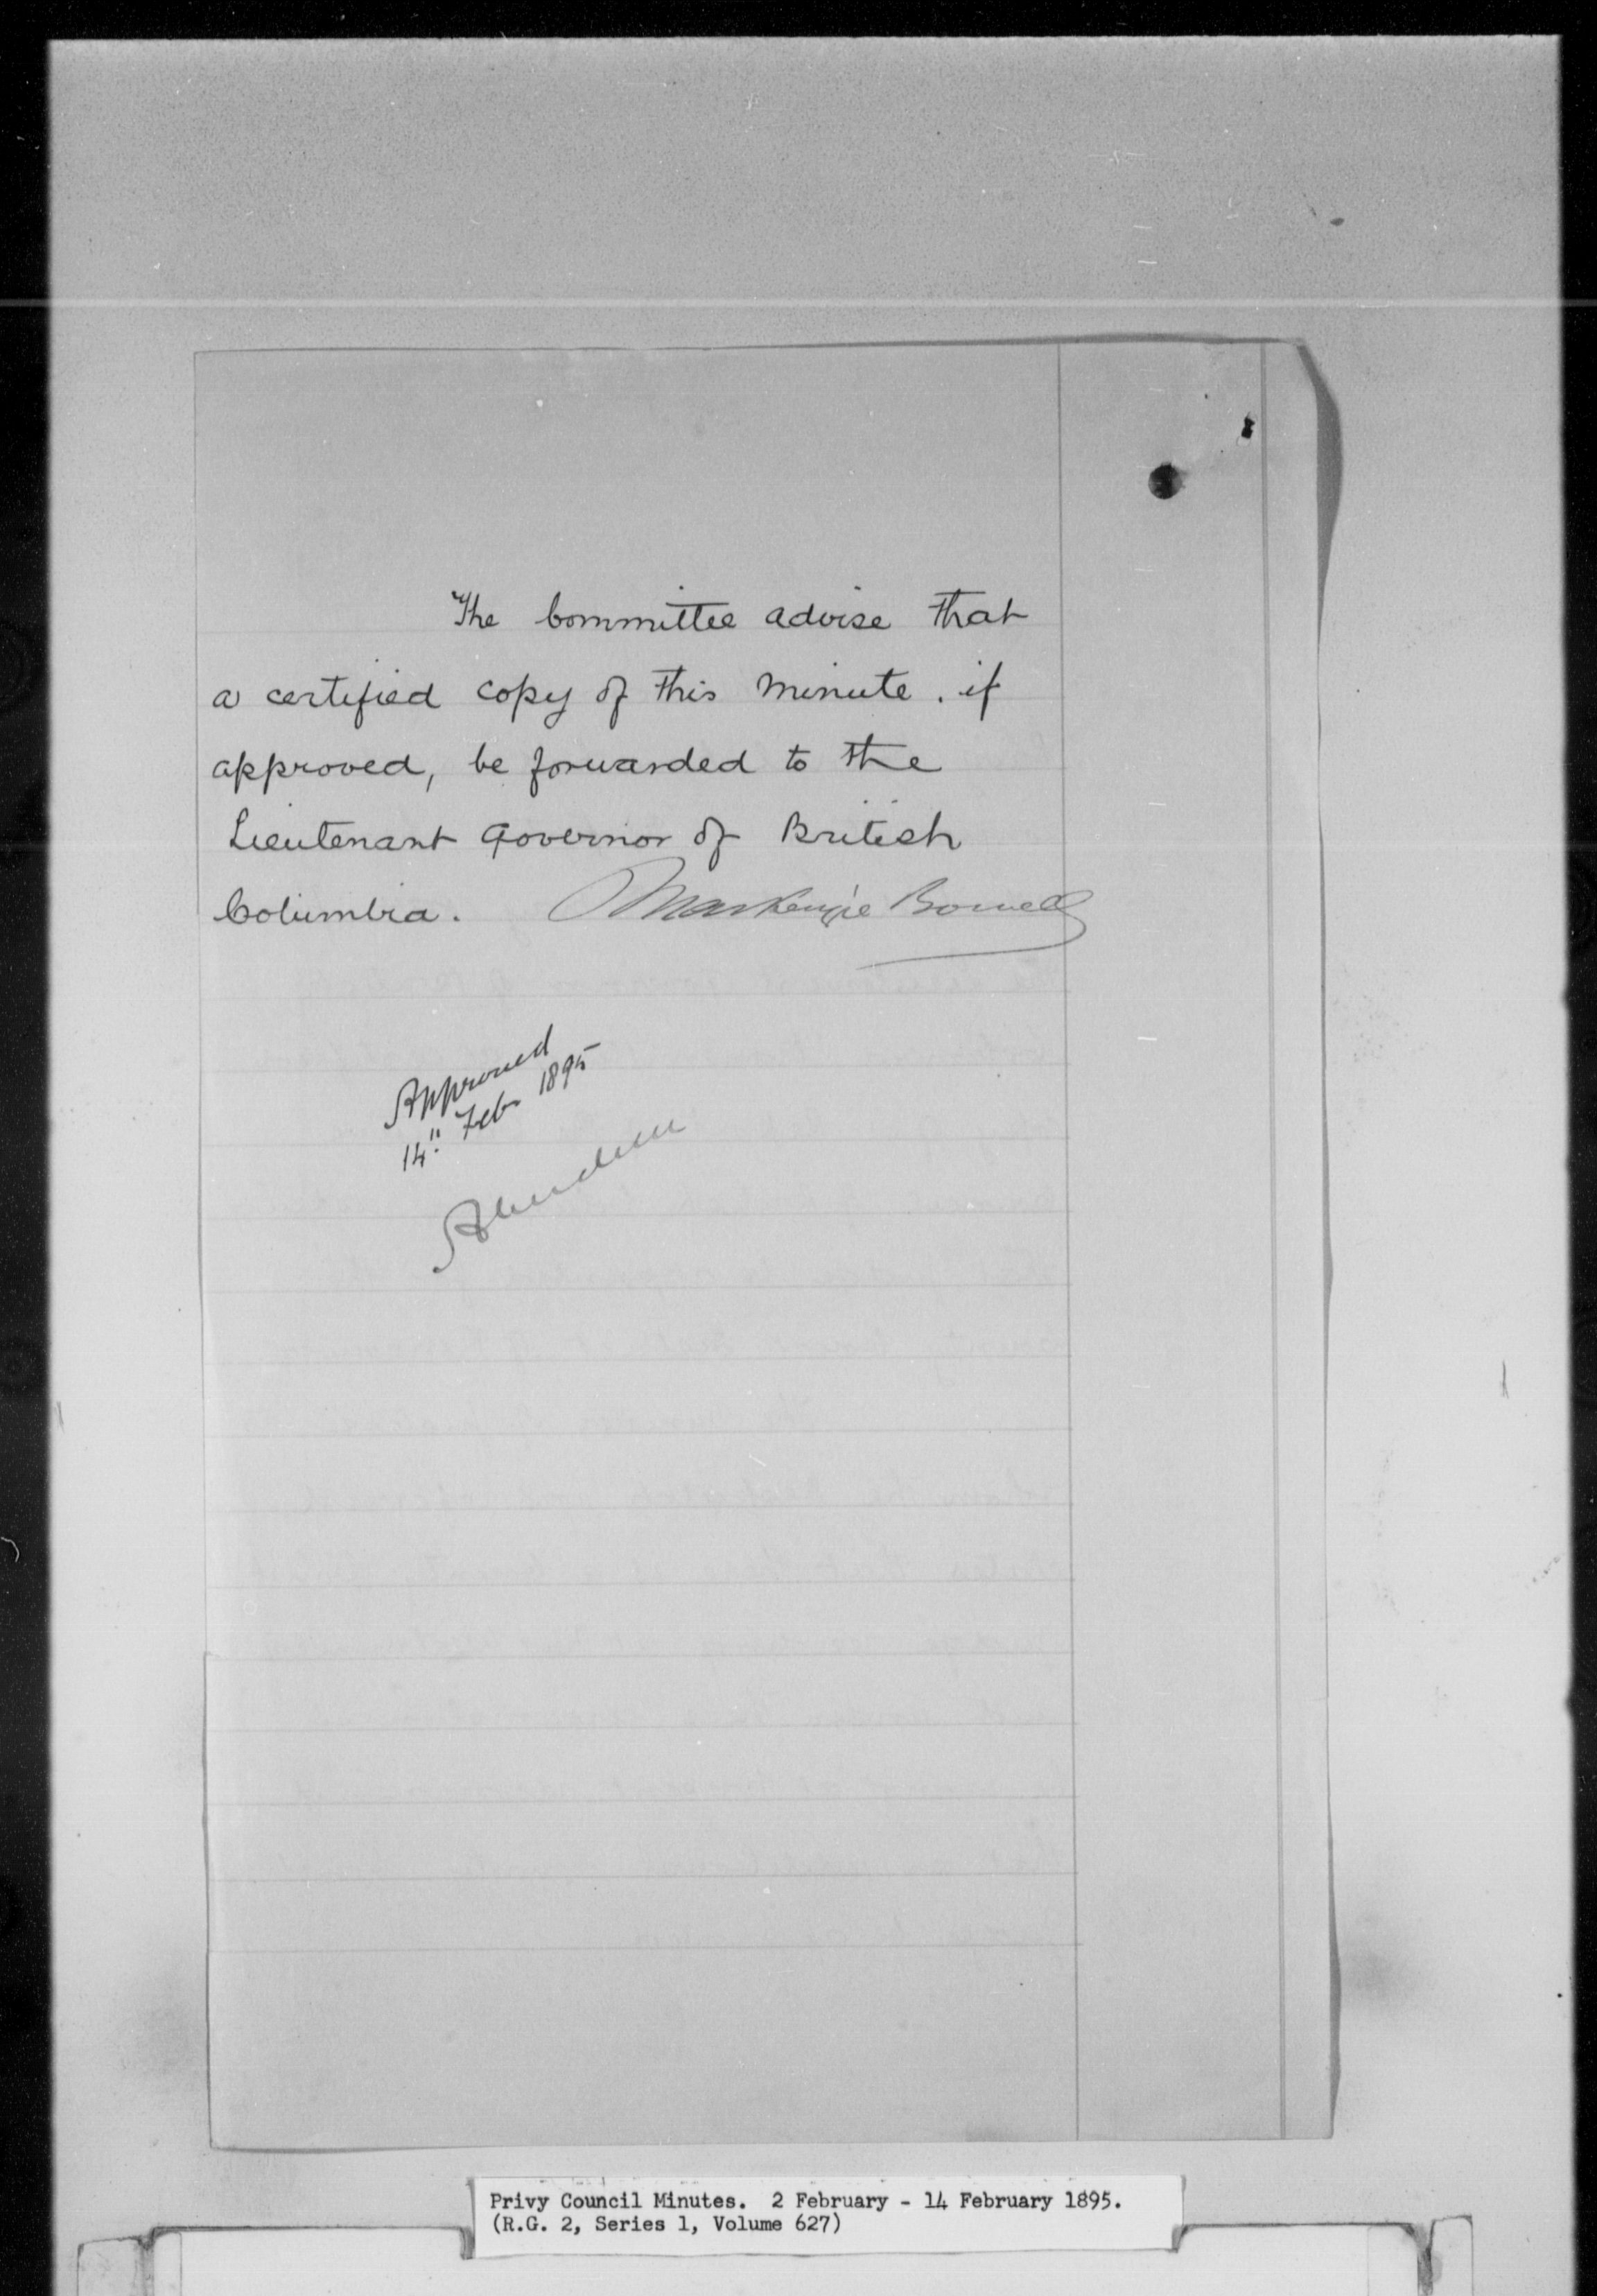 The Committee advise that
a certified copy of this Minute. if
approved, be forwarded to the
Lieutenant Governor of British
Columbia. Mackenzie Bowell
Approved
14" Feb 1895
Aberdeen
Privy Council Minutes. 2 February - 14 February 1895.
(R.G. 2, Series 1, Volume 627)